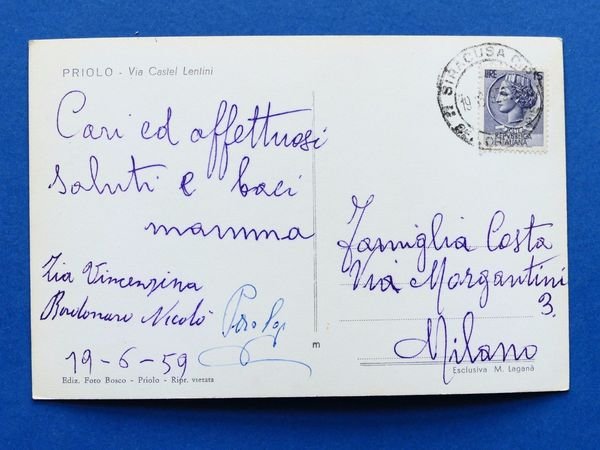 PRIOLO - Via Castel Lentini
Cari ed affettuosi
saluti e baci
mamma
Zia Vincenzina
Bordonaro Nicolò
19-6-59
Ediz. Foto Bosco - Priolo - Ripr. vietata
SIRACUSA
19
LIRE 15
REPVBBLICA
ITALIANA
Famiglia Costa
Via Morgantini
3
Milano
m
Esclusiva M. Laganà